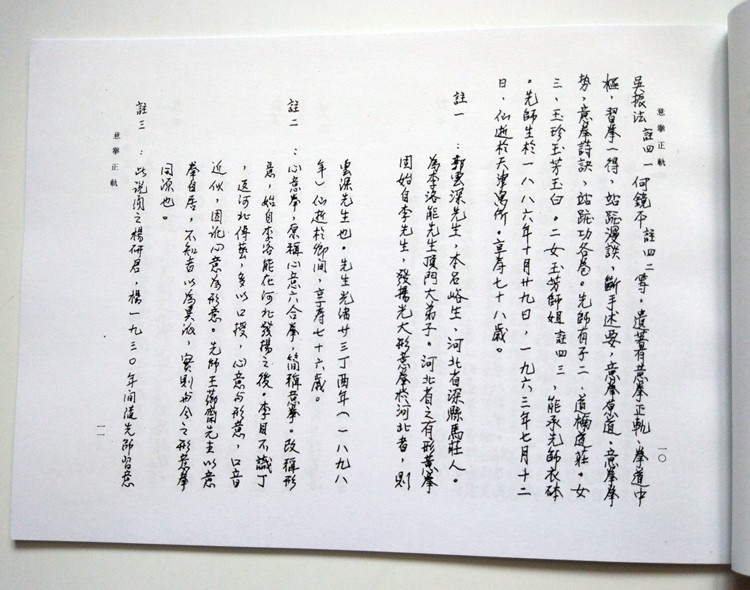 意拳正軌
一〇
吳振法 註四一 何鏡平 註四二 等，遺著有意拳正軌、拳道中
樞，習拳一得，站樁漫談，斷手述要，意拳道，意拳拳
勢，意拳詩訣，站樁功各卷。先師有子二，道楠道莊。女
三，玉珍玉芳玉白。二女玉芳師姐 註四三，能承先師衣缽
。先師生於一八八六年十月廿九日，一九六三年七月十二
日，仙逝於天津寓所。享壽七十八歲。
註一：郭雲深先生，本名峪生，河北省深縣馬莊人。
為李洛能先生頂門大弟子。河北省之有形意拳
固始自李先生，發揚光大形意拳於河北省，則
雲深先生也。先生光緒廿三丁酉年（一八九八
年）仙逝於鄉間，享壽七十六歲。
註二：心意拳，原稱心意六合拳，簡稱意拳。改稱形
意，始自李洛能在河北發揚之後。李目不識丁
，返河北傳藝，多以口授，心意与形意，口音
近似，因訛心意為形意。先師王薌齋先生以意
拳自居，不知者以為異派，實則与今之形意拳
同源也。
註三：此說聞之楊研君，楊一九三〇年間從先師習意
意拳正軌
一一